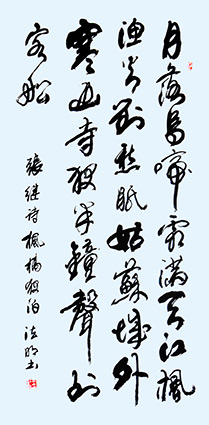 月落烏啼霜滿天江楓
渔火對愁眠姑蘇城外
寒山寺夜半鐘聲到
客船
張继诗楓橋夜泊